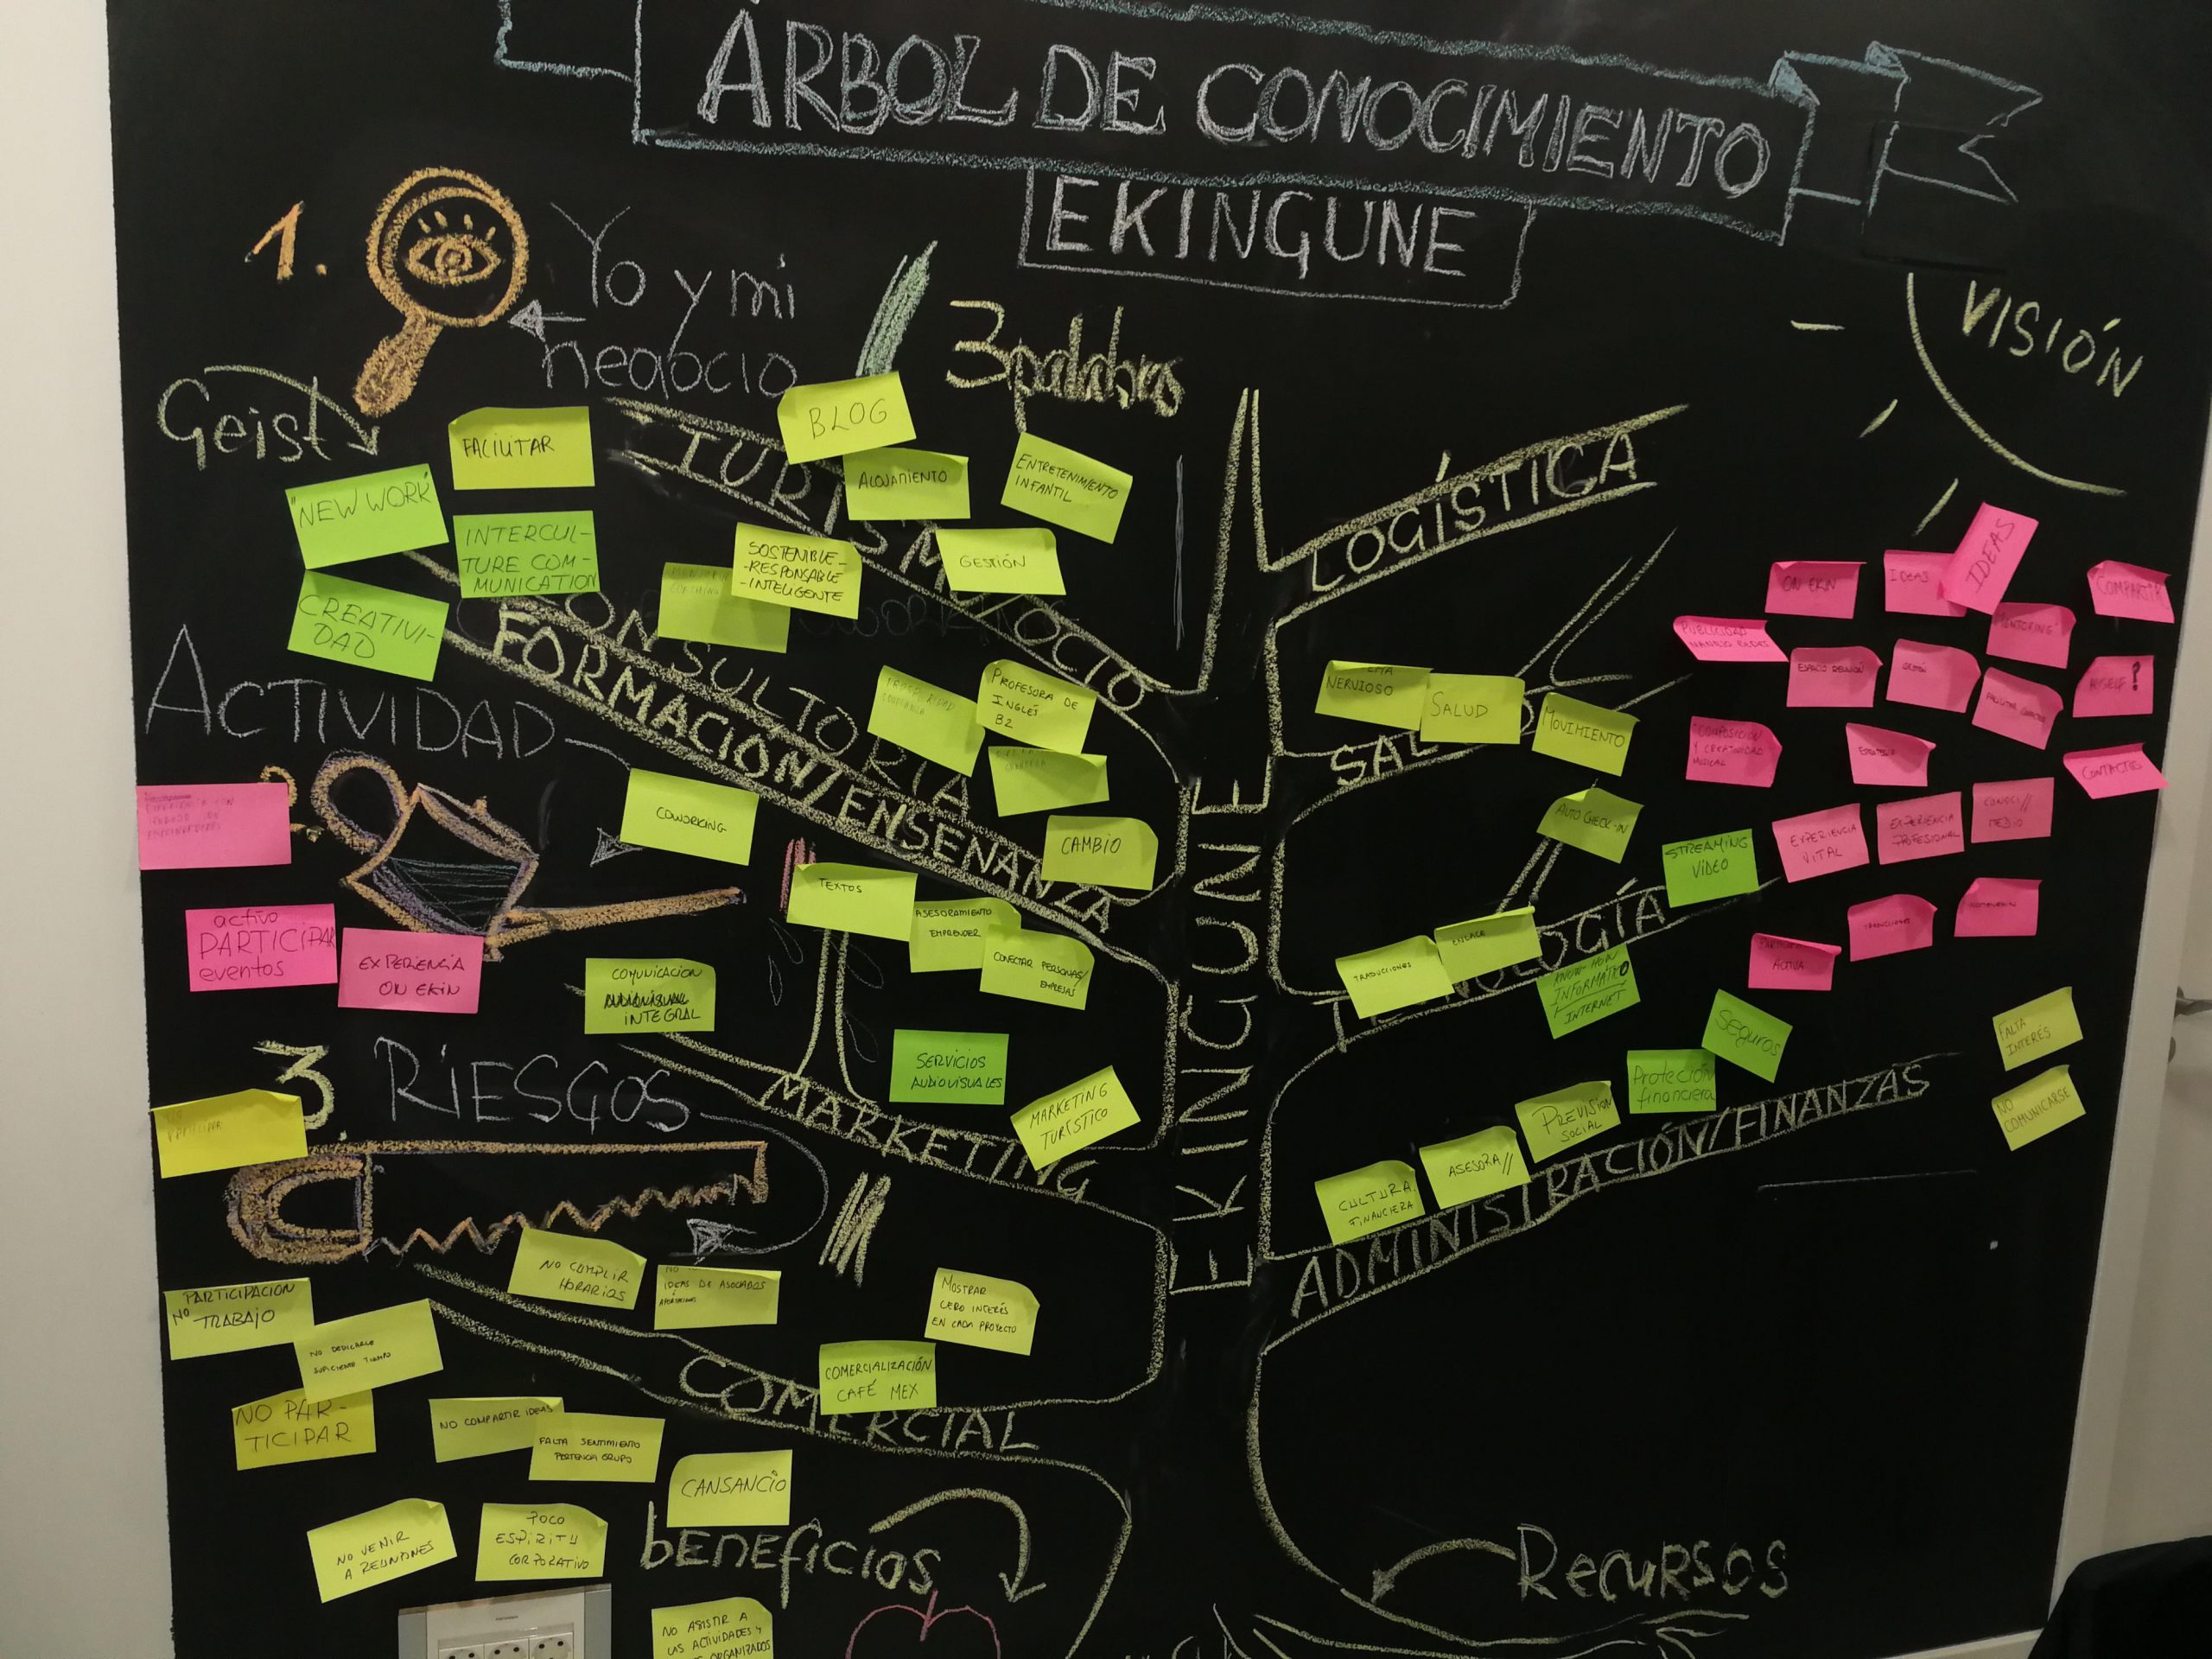 ÁRBOL DE CONOCIMIENTO
EKINGUNE
1.
Yo y mi
negocio
3 palabras
VISIÓN
Geist
FACILITAR
"NEW WORK"
INTERCUL-
TURE COM-
MUNICATION
CREATIVI-
DAD
TURISMO/OCIO
BLOG
ALOJAMIENTO
ENTRETENIMIENTO
INFANTIL
SOSTENIBLE-
-RESPONSABLE
-INTELIGENTE
GESTIÓN
COACHING
CONSULTORIA
FORMACIÓN/ENSEÑANZA
PROFESORA DE
INGLÉS
B2
CAMBIO
ACTIVIDAD
COWORKING
TEXTOS
ASESORAMIENTO
EMPRENDER
CONECTAR PERSONAS/
EMPRESAS
activo
PARTICIPAR
eventos
EXPERIENCIA
ON EKIN
COMUNICACION
AUDIOVISUAL
INTEGRAL
SERVICIOS
AUDIOVISUALES
MARKETING
TURÍSTICO
MARKETING
3
RIESGOS
NO CUMPLIR
HORARIOS
NO
IDEAS DE ASOCIADOS
APORTACIONES
MOSTRAR
CERO INTERÉS
EN CADA PROYECTO
COMERCIALIZACIÓN
CAFÉ MEX
COMERCIAL
PARTICIPACION
NO TRABAJO
NO DEDICARLE
SUFICIENTE TIEMPO
NO PAR-
TICIPAR
NO COMPARTIR IDEAS
FALTA SENTIMIENTO
PERTENCIA GRUPO
CANSANCIO
NO VENIR
A REUNIONES
POCO
ESPIRITU
CORPORATIVO
NO ASISTIR A
LAS ACTIVIDADES Y
ORGANIZADOS
beneficios
EKINGUNE
LOGÍSTICA
NERVIOSO
SALUD
MOVIMIENTO
SALUD
AUTO CHECK-IN
STREAMING
VIDEO
TRADUCCIONES
ENLACE
KNOW-HOW
INFORMÁTICO
INTERNET
TECNOLOGÍA
Seguros
Proteción
financiera
PREVISION
SOCIAL
ASESORA//
CULTURA
FINANCIERA
ADMINISTRACIÓN/FINANZAS
ON EKIN
IDEAS
IDEAS
COMPARTIR
PUBLICIDAD
MANEJO REDES
MENTORING
ESPACIO REUNIÓN
GESTIÓN
FACILITAR CONTACTOS
MYSELF!
COMPOSICION
Y CREATIVIDAD
MUSICAL
CONTACTOS
EXPERIENCIA
VITAL
EXPERIENCIA
PROFESIONAL
CONOCI//
MEDIO
ACTIVA
FALTA
INTERÉS
NO
COMUNICARSE
RECURSOS